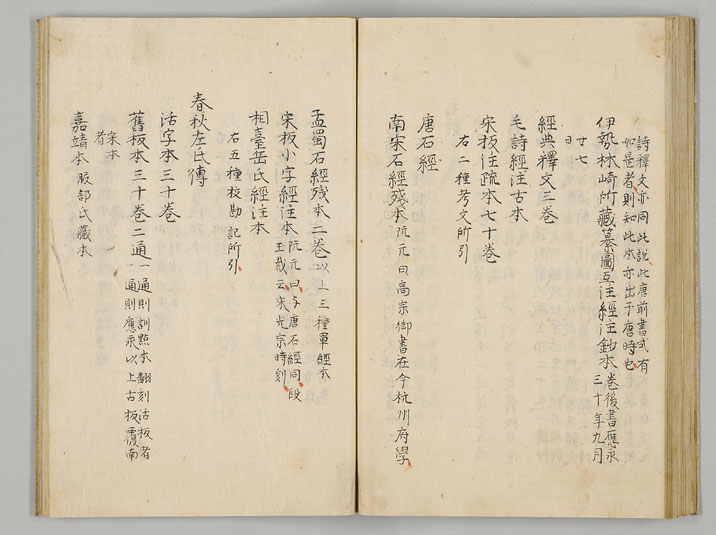 詩釋文亦同此説此唐前書式有
如是者則知此本亦出于唐時也
伊勢林崎所藏纂圖互注經注鈔本卷後書應永
三十年九月
廿七
日
經典釋文三卷
毛詩經注古本
宋板注疏本七十卷
右二種考文所引
唐石經
南宋石經殘本阮元曰高宗御書在今杭州府學
孟蜀石經殘本二卷以上三種單經本
宋板小字經注本阮元曰与唐石經同段
玉裁云宋光宗時刻
相臺岳氏經注本
右五種校勘記所引
春秋左氏傳
活字本三十卷
舊板本三十卷二通一通則訓點本翻刻活板者
一通則應永以上古板覆南
宋本
者
嘉靖本服部氏藏本